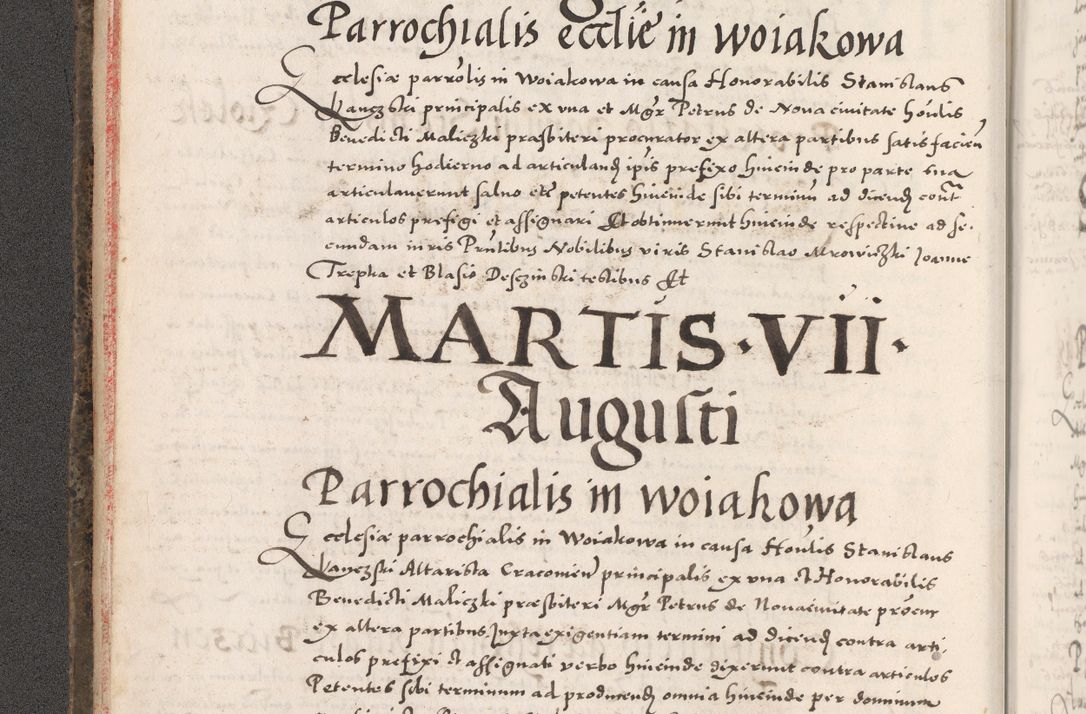 Parrochialis ecctlie in Woiakowa
Ecclesiæ parrolis in Woiakowa in causa Honorabilis Stanislaus
Kanczski principalis ex vna et Mgr Petrus de Noua ciuitate houlis
Benedicti Maliczki præsbiteri procurator ex altera partibus satis facien
termino hodierno ad articuland ipis prefixo hincinde pro parte sua
articulauerunt saluo etc petentes hincinde sibi terminu ad dicend cont
articulos prefigi et assignari Et obtinuerunt hincinde respectiue ad se.
cundam iuris Pntibus Nobilibus viris Stanislao Mrowiczki Joanne
Trepka et Blasio Desczinski testibus Et
MARTIS · VII ·
Augusti
Parrochialis in Woiakowa
Ecclesiæ parrochialis in Woiakowa in causa Houlis Stanislaus
Kanczski Altarista Cracouien principalis ex vna et Honorabilis
Benedicti Maliczki præsbiteri Mgr Petrus de Nouaciuitate procur
ex altera partibus. Juxta exigentiam termini ad dicend contra arti.
culos prefixi et assignati verbo hincinde dixerunt contra articulos
Petentes sibi terminum ad producend omnia hincinde per dominum